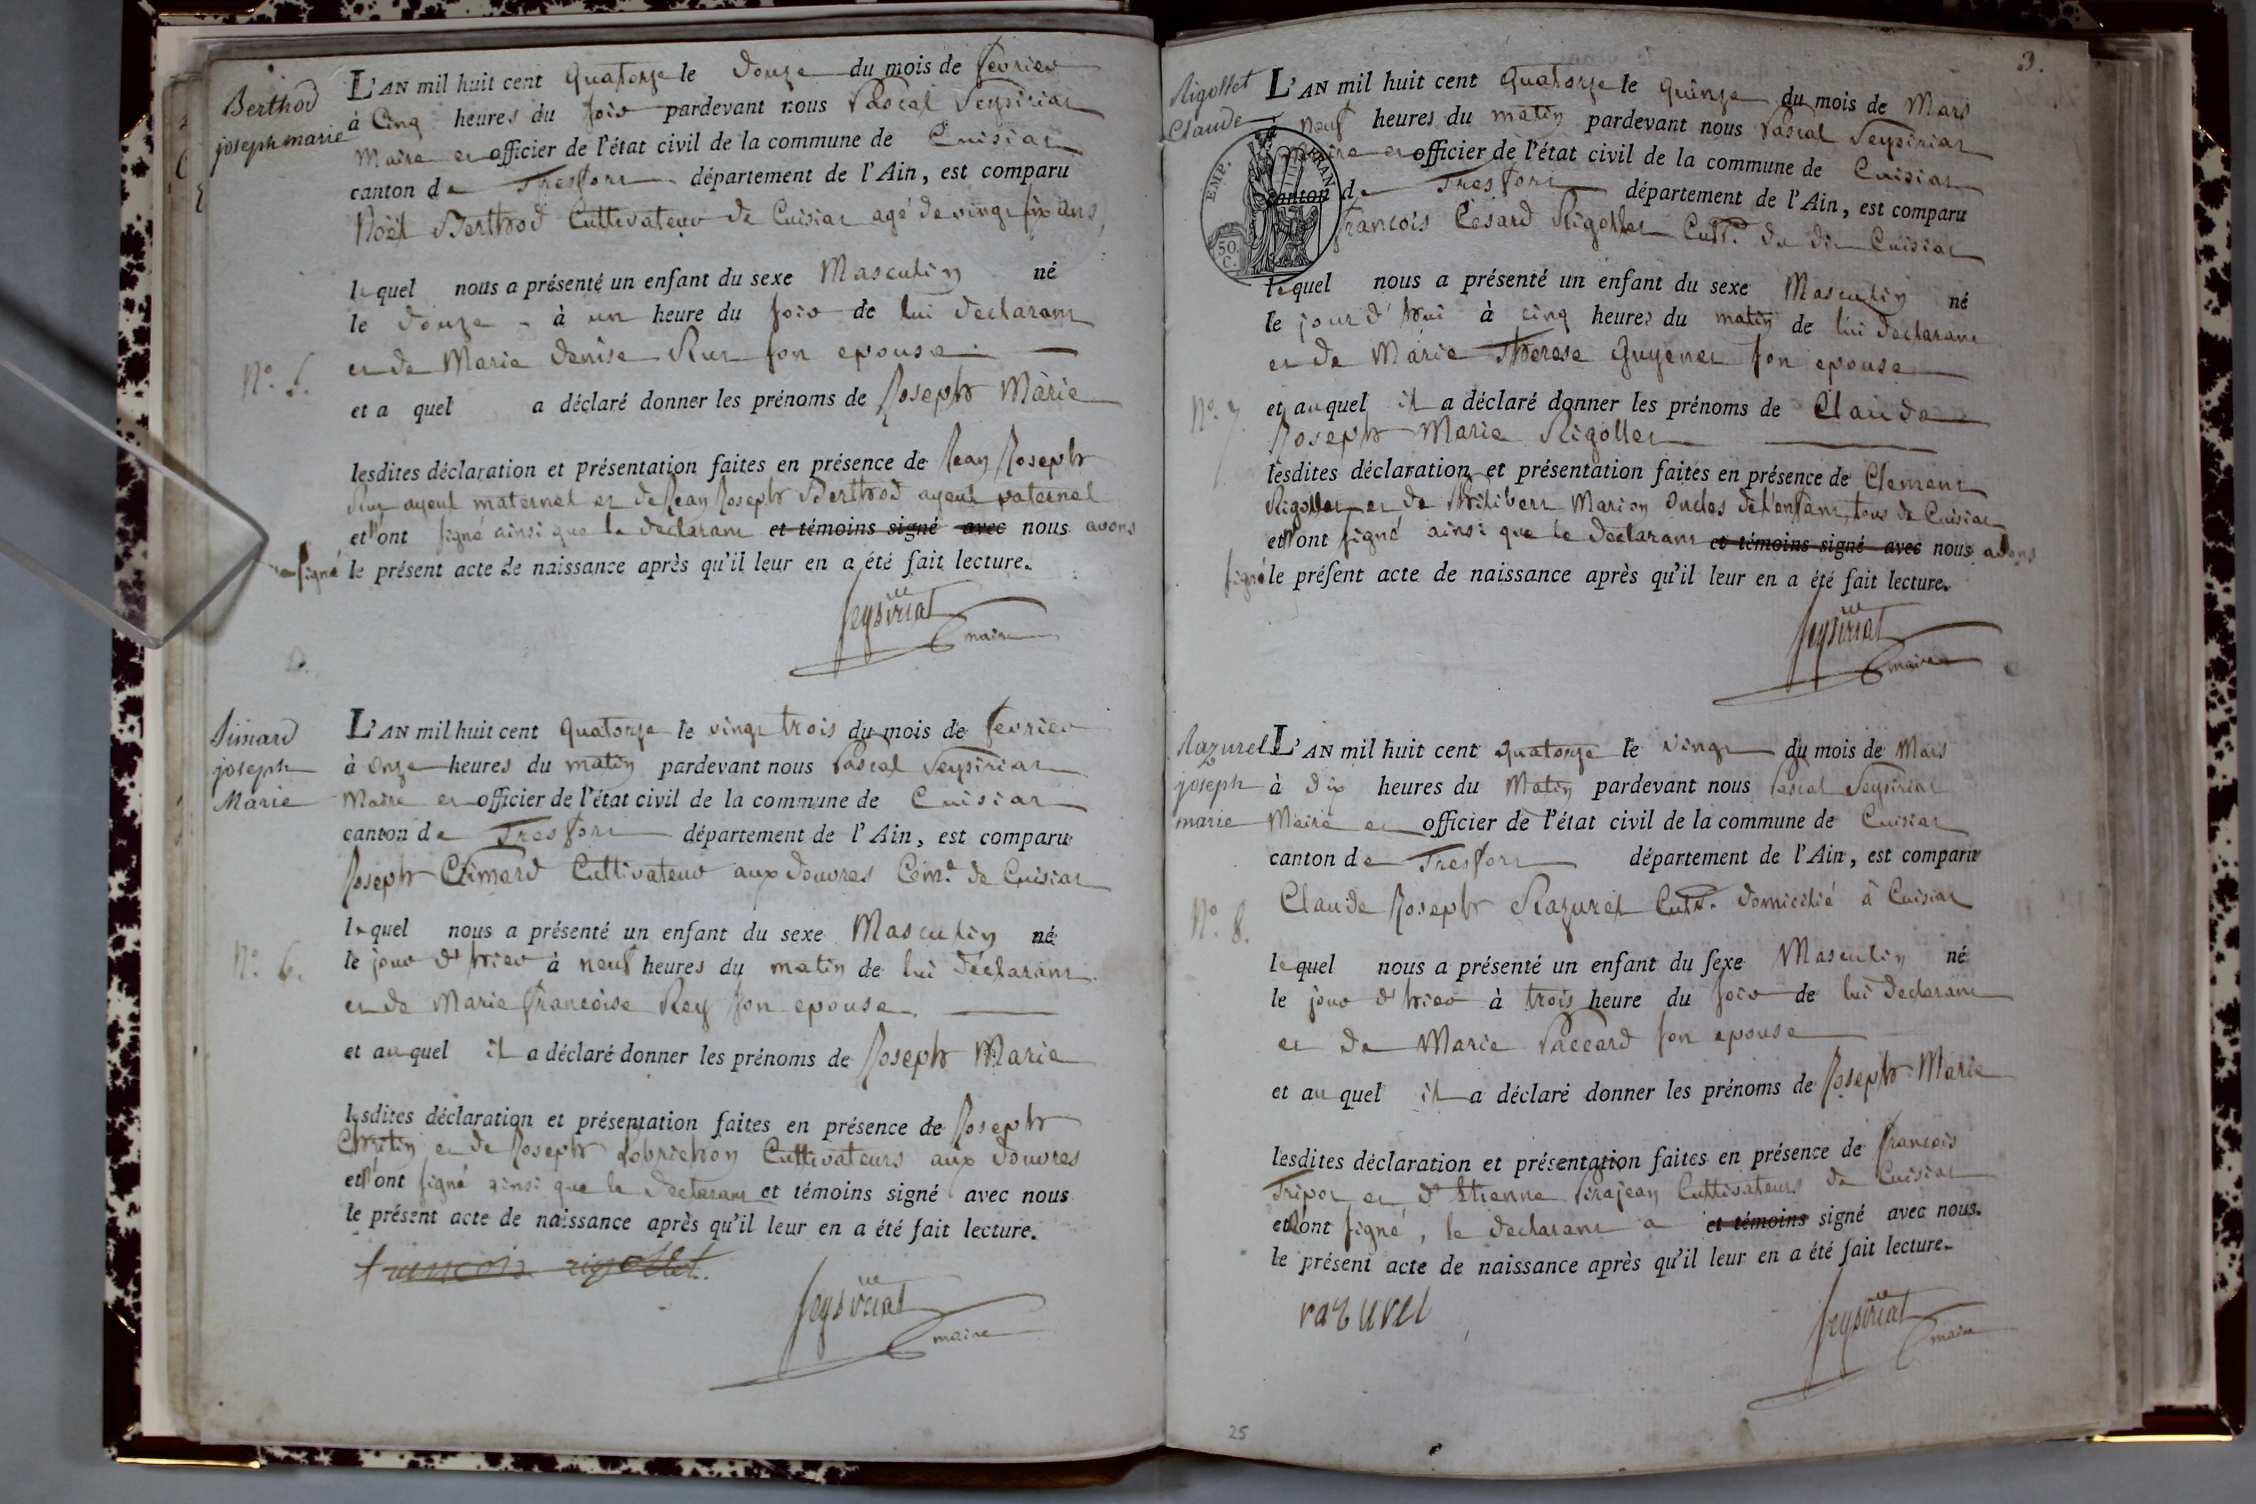 Berthod
joseph marie
L'AN mil huit cent quatorze le douze du mois de fevrier
à Cinq heures du soir pardevant nous Pascal Seysiriat
Maire et officier de l'état civil de la commune de Cuisiat
canton de Tresfort département de l'Ain, est comparu
Noël Berthod Cultivateur de Cuisiat agé de vingt six ans
lequel nous a présenté un enfant du sexe Masculin né
le douze à un heure du soir de lui déclarant
et de Marie denise Rut son epouse
N.° 5.
et a quel a déclaré donner les prénoms de Joseph Marie
lesdites déclaration et présentation faites en présence de Jean Joseph
Rut ayeul maternel et de Jean Joseph Berthod ayeul paternel
et n'ont signé ainsi que le declarant et témoins signé avec nous avons
signé le présent acte de naissance après qu'il leur en a été fait lecture.
Seysiriat
maire
Simard
joseph
Marie
L'AN mil huit cent quatorze le vingt trois du mois de fevrier
à Onze heures du matin pardevant nous Pascal Seysiriat
Maire et officier de l'état civil de la commune de Cuisiat
canton de Tresfort département de l'Ain, est comparu
Joseph Cultivateur aux douvres Com.e de Cuisiat
lequel nous a présenté un enfant du sexe Masculin né
N.° 6.
le jour d'hier à neuf heures du matin de lui déclarant
et de Marie francoise Rey son epouse
et auquel il a déclaré donner les prénoms de Joseph Marie
lesdites déclaration et présentation faites en présence de Joseph
Chritin et de Joseph Lobrichon Cultivateurs aux douvres
et n'ont signé ainsi que le declarant et témoins signé avec nous
le présent acte de naissance après qu'il leur en a été fait lecture.
francois rigollet
Seysiriat
maire
3.
Rigollet
Claude
L'AN mil huit cent quatorze le quinze du mois de Mars
à neuf heures du matin pardevant nous Pascal Seysiriat
Maire et officier de l'état civil de la commune de Cuisiat
canton de Tresfort département de l'Ain, est comparu
EMP. FRAN
50
C.
francois Césard Rigollet Cult.r du dit Cuisiat
lequel nous a présenté un enfant du sexe Masculin né
le jour d'hui à cinq heures du matin de lui déclarant
et de Marie Therese Guyenet son epouse
N.° 7.
et auquel il a déclaré donner les prénoms de Claude
Joseph Marie Rigollet
lesdites déclaration et présentation faites en présence de Clement
Rigollet et de Philibert Marion Oncles de l'enfant, tous de Cuisiat
et n'ont signé ainsi que le declarant et témoins signé avec nous avons
signé le présent acte de naissance après qu'il leur en a été fait lecture.
Seysiriat
maire
Razurel
joseph
marie
L'AN mil huit cent quatorze le vingt du mois de Mars
à dix heures du Matin pardevant nous Pascal Seysiriat
Maire et officier de l'état civil de la commune de Cuisiat
canton de Tresfort département de l'Ain, est comparu
Claude Joseph Razurel Cult.r domicilié à Cuisiat
N.° 8.
lequel nous a présenté un enfant du sexe Masculin né
le jour d'hier à trois heure du soir de lui declarant
et de Marie Paccard son epouse
et auquel il a déclaré donner les prénoms de Joseph Marie
lesdites déclaration et présentation faites en présence de francois
Tripoz et d'Etienne Pirajean Cultivateurs de Cuisiat
et n'ont signé, le declarant a et témoins signé avec nous
le présent acte de naissance après qu'il leur en a été fait lecture.
razurel
Seysiriat
maire
25